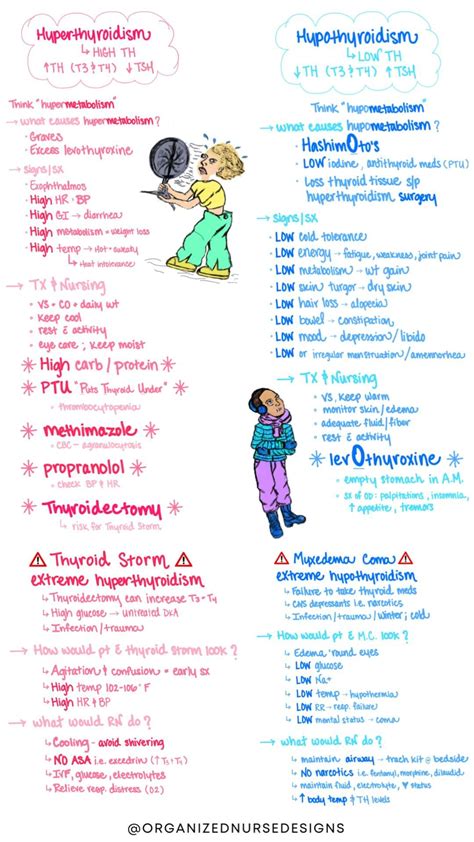 Hyperthyroidism
↳ HIGH TH
↑TH (T3 & T4) ↓TSH
Think "hypermetabolism"
→ what causes hypermetabolism?
• Graves
• Excess levothyroxine
→ signs/sx
• Exophthalmos
• High HR & BP
• High GI → diarrhea
• High metabolism → weight loss
• High temp → hot & sweaty
↳ heat intolerance
→ TX & Nursing
• VS + CO + daily wt
• keep cool
• rest & activity
• eye care ; keep moist
* High carb / protein *
* PTU "Puts Thyroid Under" *
• thrombocytopenia
* methimazole *
• CBC → agranulocytosis
* propranolol *
• check BP & HR
* Thyroidectomy *
↳ risk for Thyroid Storm
⚠ Thyroid Storm ⚠
extreme hyperthyroidism
↳ Thyroidectomy can increase T3 & T4
↳ High glucose → untreated DKA
↳ Infection/trauma
→ How would pt & thyroid storm look?
↳ Agitation & confusion = early sx
↳ High temp 102-106° F
↳ High HR & BP
→ what would RN do?
↳ Cooling - avoid shivering
↳ NO ASA i.e. excedrin (↑T3 & T4)
↳ IVF, glucose, electrolytes
↳ Relieve resp. distress (O2)
Hypothyroidism
↳ LOW TH
↓TH (T3 & T4) ↑TSH
Think "hypometabolism"
→ what causes hypometabolism?
• HashimOto's
• LOW iodine, antithyroid meds (PTU)
• Loss thyroid tissue s/p
hyperthyroidism surgery
→ signs/sx
• LOW cold tolerance
• LOW energy → fatigue, weakness, joint pain
• LOW metabolism → wt gain
• LOW skin turgor → dry skin
• LOW hair loss → alopecia
• LOW bowel → constipation
• LOW mood → depression/libido
• LOW or irregular menstruation/amenorrhea
→ TX & Nursing
• VS, keep warm
• monitor skin/edema
• adequate fluid/fiber
• rest & activity
* levOthyroxine *
• empty stomach in A.M.
• SX of OD: palpitations, insomnia,
↑ appetite, tremors
⚠ Myxedema Coma ⚠
extreme hypothyroidism
↳ Failure to take thyroid meds
↳ CNS depressants i.e. narcotics
↳ Infection/trauma/winter; cold
→ How would pt & M.C. look?
↳ Edema 'round eyes
↳ LOW glucose
↳ LOW Na+
↳ LOW temp → hypothermia
↳ LOW RR → resp. failure
↳ LOW mental status → coma
→ what would RN do?
↳ maintain airway → trach kit @ bedside
↳ NO narcotics i.e. fentanyl, morphine, dilaudid
↳ maintain fluid, electrolyte, status
↳ ↑ body temp & TH levels
@ORGANIZEDNURSEDESIGNS